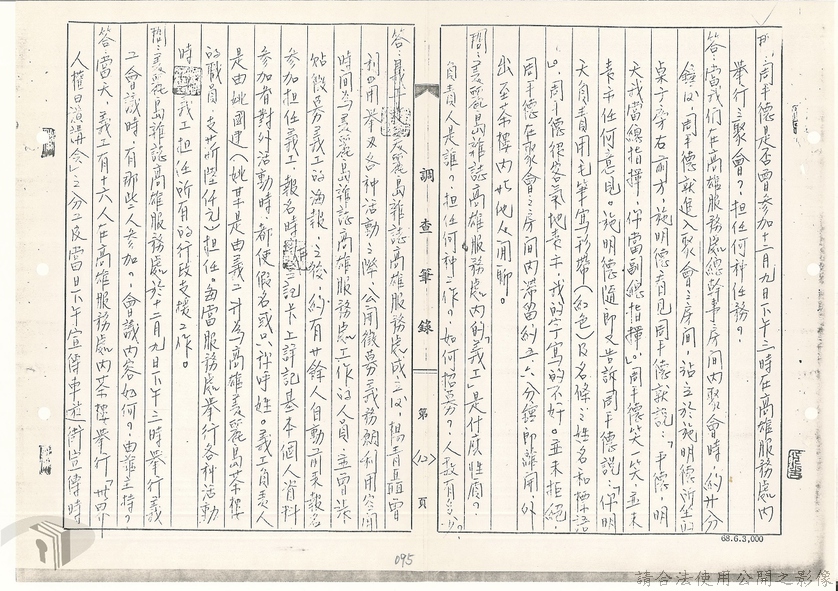 問：周平德是否曾參加十二月九日下午三時在高雄服務處內
舉行之聚會？擔任何種任務？
答：當我們在高雄服務處總幹事房間內聚會時，約廿分
鐘後，周平德就進入聚會之房間，站立於施明德所坐的
桌子旁右前方，施明德看見周平德就說：「平德，明
天我當總指揮，你當副總指揮」。周平德笑一笑並未
表示任何意見。施明德隨即又告訴周平德說：「你明
天負責用毛筆寫彩帶（紅色）及名條之姓名和標語
」。周平德很客氣地表示我的字寫的不好。並未拒絕，
周平德在聚會之房間內滯留約五、六分鐘即離開，外
出至茶樓內與他人閒聊。
問：美麗島雜誌高雄服務處內的「義工」是什麼性質？
負責人是誰？擔任何種工作？如何招募？人數有多少？
調查筆錄
第
頁
答：義工 美麗島雜誌高雄服務處成立後，楊青矗曾
利用舉及各種活動之際，公開徵募義務願利用空閒
時間為美麗島雜誌高雄服務處工作的人員，並曾張
貼假募義工的海報，之後，約有廿餘人自動前來報名
參加擔任義工，報名時 記卡上詳記基本個人資料
參加者對外活動時，都使假名或只稱呼姓。義工負責人
是由姚國建（姚某是由義工升為高雄美麗島茶樓
的職員，支薪 仟元）擔任。每當服務處舉行各種活動
時，義工擔任所有的行政支援工作。
問：美麗島雜誌高雄服務處於十二月九日下午三時舉行義
工會議時，有那些人參加？會議內容如何？由誰主持？
答：當天，義工有十六人在高雄服務處內茶樓舉行「世界
人權日演講會」之分工及當日下午宣傳車遊街宣傳時
095
68.6.3,000
請合法使用公開之影像